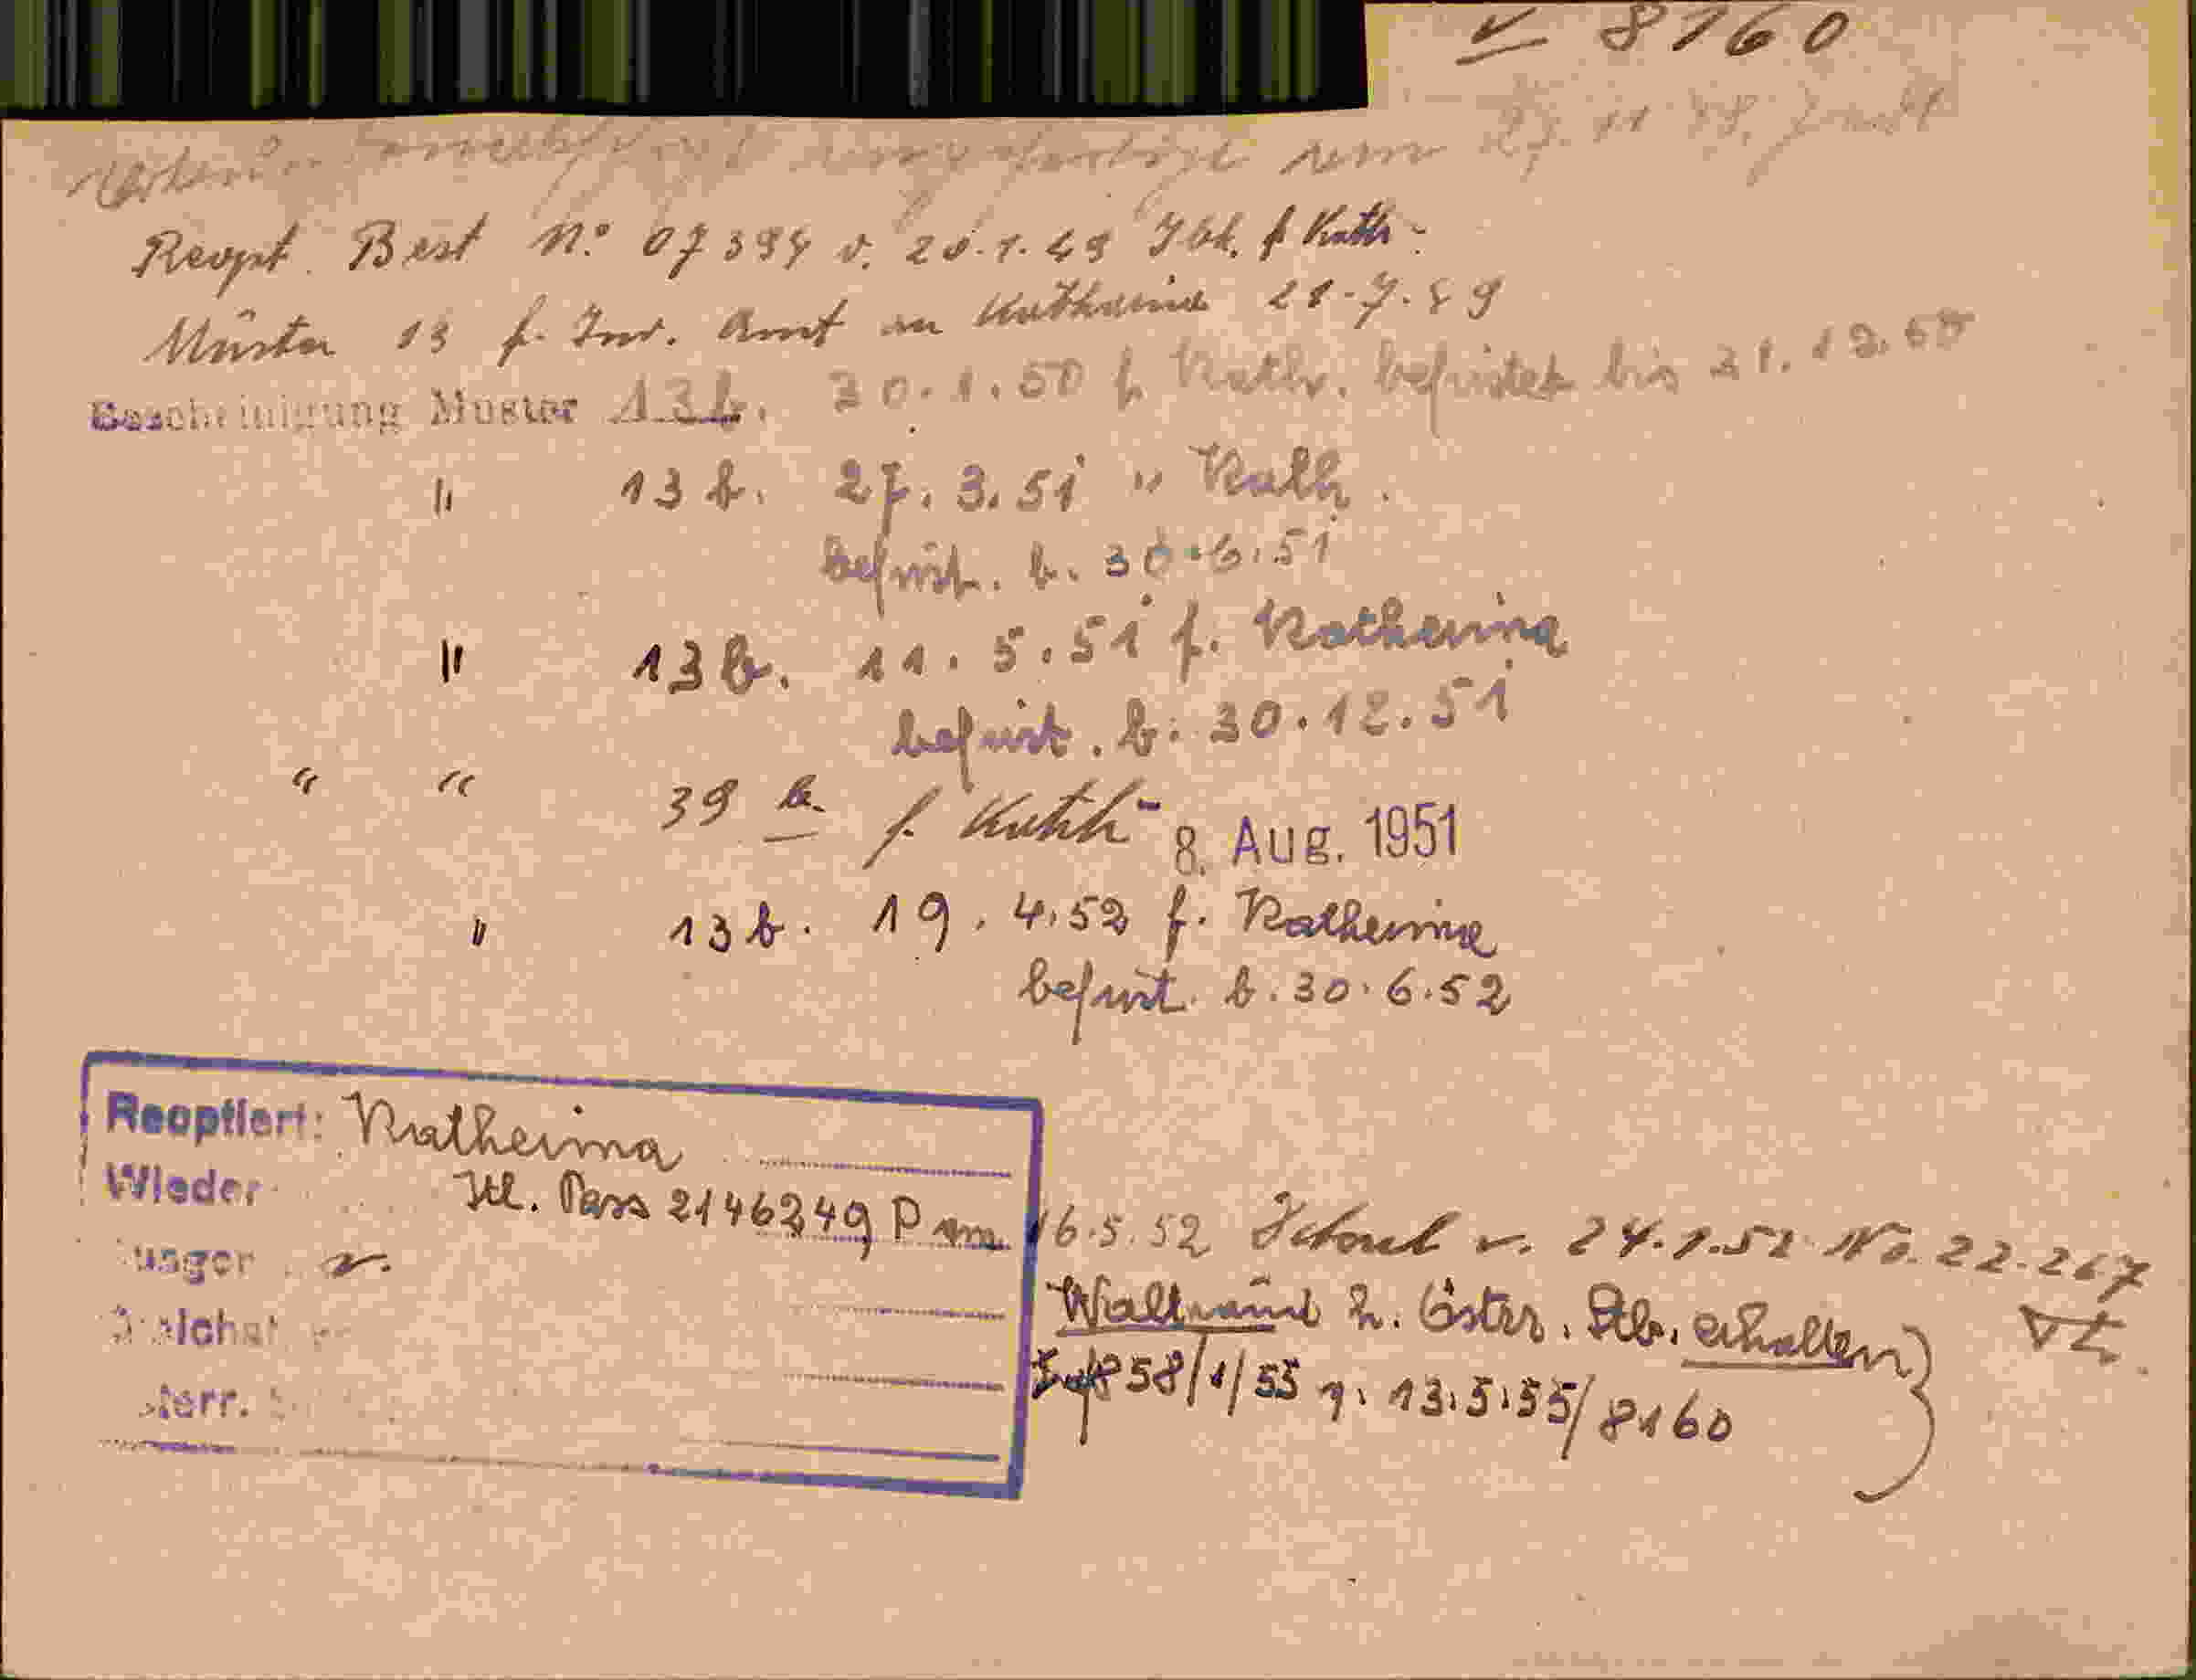 v 8160
vom 27. 11 48.
Reopt. Best No 07394 v. 20.1.49 Ibk. f Kath.
Muster 13 f. Inv. Amt an Katharina 21.7.49
Bescheinigung Muster 13b. 30.1.50 f. Kath. befristet bis 31.12.50
" 13 b. 27. 3. 51 " Kath.
befrist. b. 30.6.51
" 13 b. 11. 5. 51 f. Katharina
befrist. b. 30.12.51
" " 39 a. f. Kath 8. Aug. 1951
" 13 b. 19. 4.52 f. Katharina
befrist. b. 30.6.52
Reoptiert: Katharina
Wieder Itl. Pass 2146249 P vom 16.5.52 v. 24.1.52 No. 22.267
v.
Waltraud h. Österr. Stb. erhalten
858/1/55 v. 13.5.55/8160
terr.